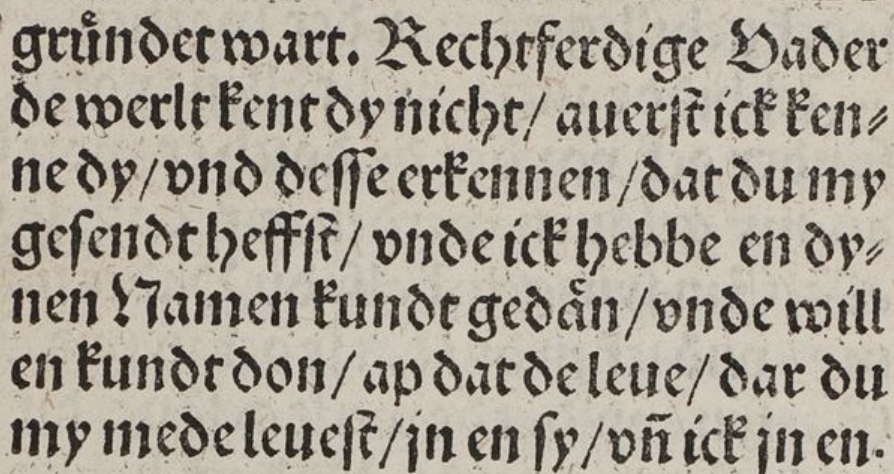 gruͤndet wart. Rechtferdige Vader
de werlt kent dy nicht/ auerst ick ken⸗
ne dy/vnd desse erkennen/dat du my
gesendt heffst/ vnde ick hebbe en dy⸗
nen Namen kundt gedaͤn/vnde will
en kundt don/ ap dat de leue/ dar du
my mede leuest/jn en sy/vn̄ ick jn en.